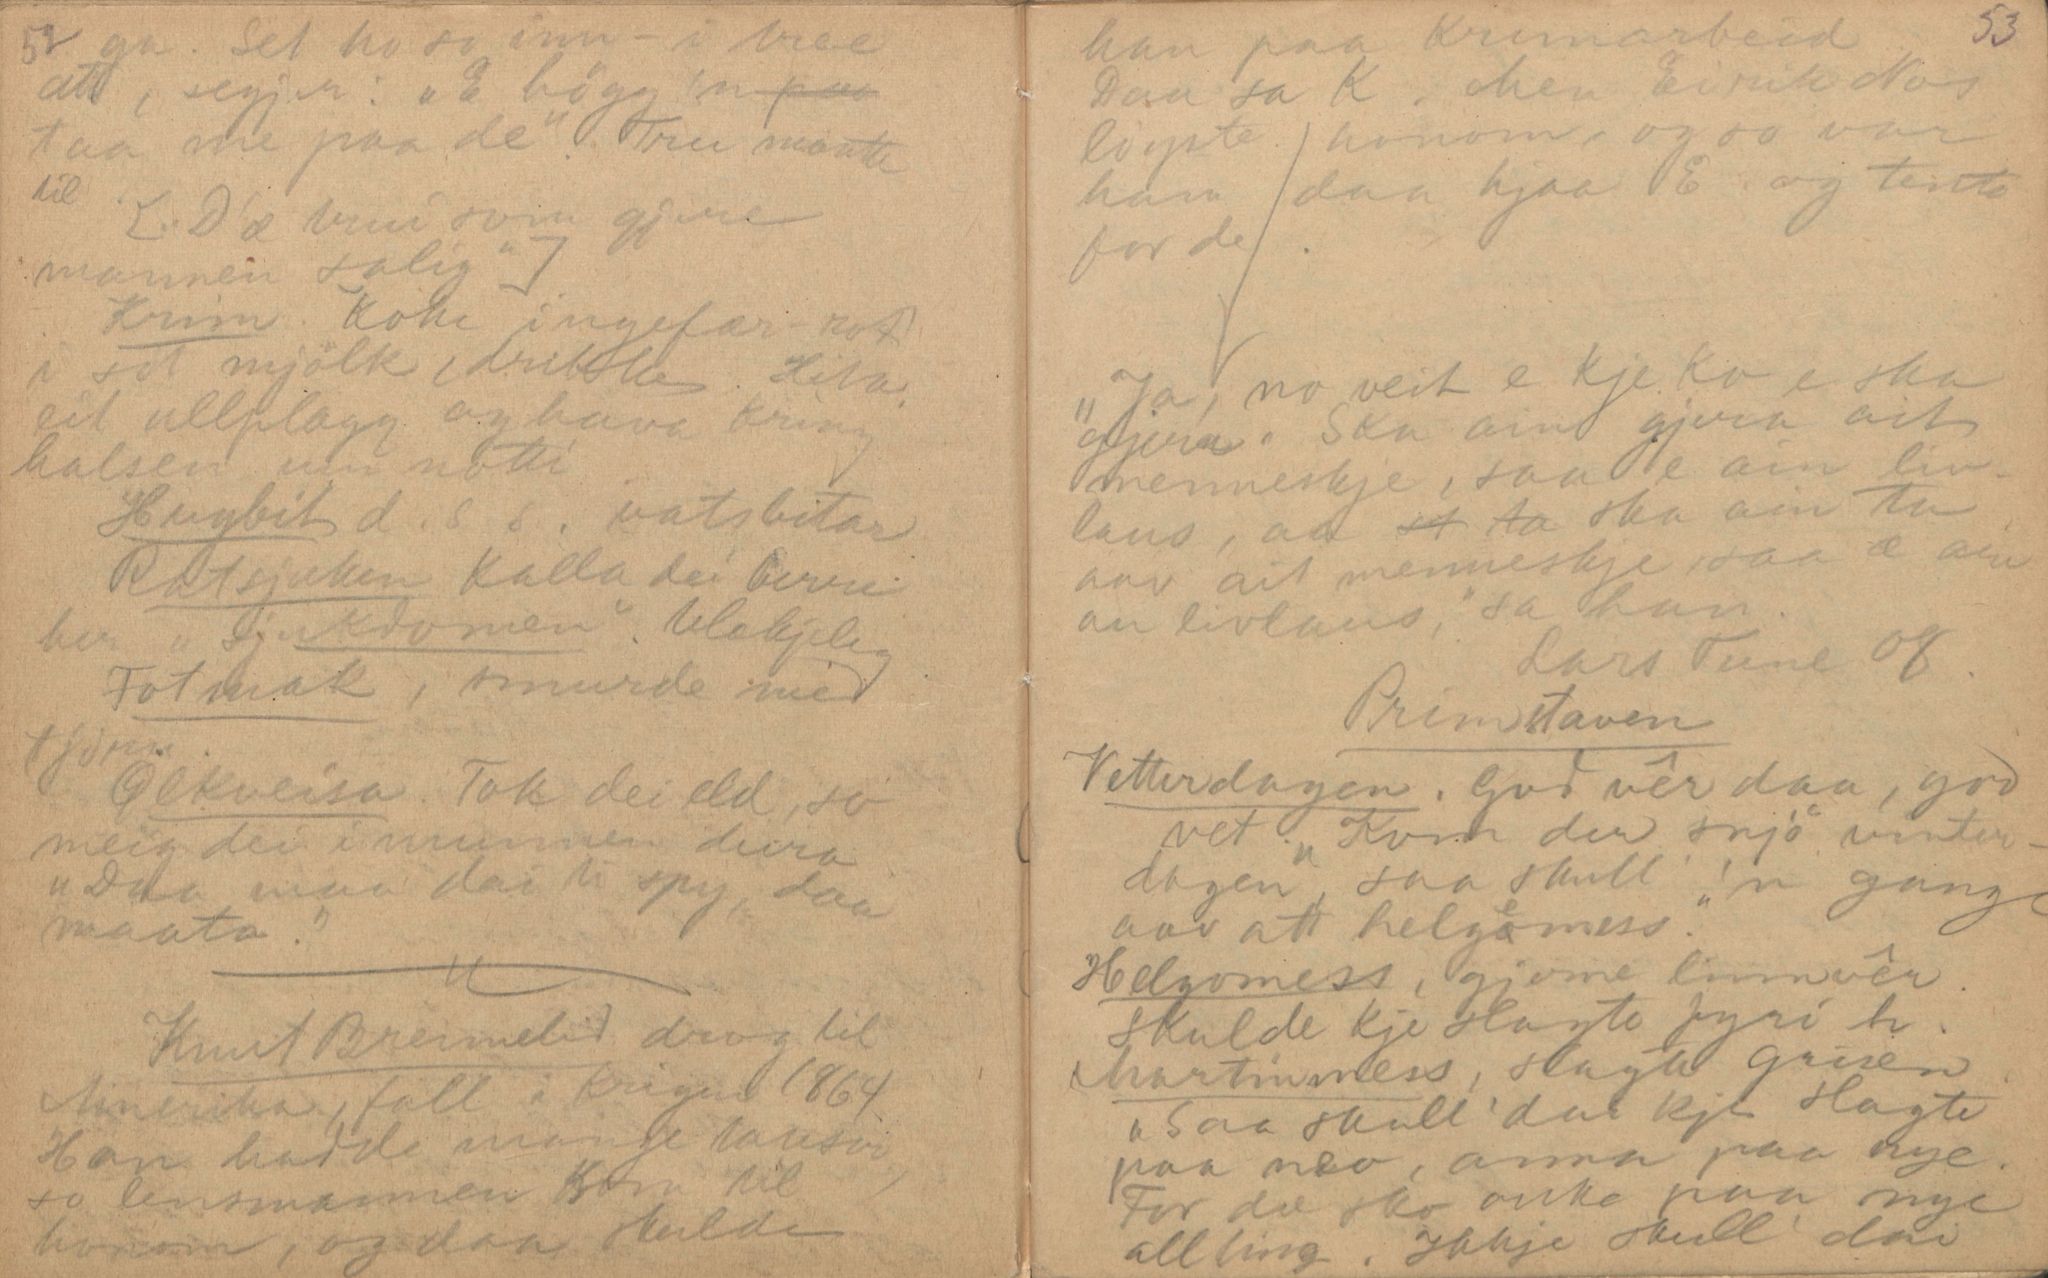 52 ga. Set ho so inn - i tree
att, segjer: "E högg 'n paa
taa me paa de". Tru maatte
til
[. D'æ trui som gjere
mannen salig"]
Krim. Koke ingefær-rot
i söt mjölk, drikke. Hita
eit ullplagg og hava kring
halsen um notti
Hugbit d. s. s. vatsbitar
Rotsjuken kalla dei berre
her "sjukdomen". Ulekjeleg
Fotmak, smurde med
tjöru.
Ölkveisa. Tok dei eld, so
meig dei i munnen deira
"Daa maa dai ti spy, daa
maata."
Knut Bremelid drog til
Amerika, fall i krigen 1864
Han hadde mange lausu
so lensmannen kom til
honom, og daa skulde
53
han paa Krimarbeid
Daa sa K. Men Eirik Nos
löyste honom, og so var
han daa hjaa E. og tente
for de.
"Ja, no veit e kje ko e ska
gjera. Ska ain gjera ait
menneskje, saa e ain liv-
laus, aa st ta ska ain ta
aav ait menneskje, saa æ ain
au livlaus," sa han.
Lars Tune og.
Primstaven
Vetterdagen. God vêr daa, god
vet. "Kom der snjö vinter-
dagen", saa skull' 'n gange
aav att helgemess."
Helgomess, gjerne linnvêr.
Skulde kje slagte fyri h.
Martinmess, slagte grisen
"Saa skull' dai kje slagte
paa neo, anna paa nye.
For dæ sko auke paa nye
allting. Ikkje skull' dai